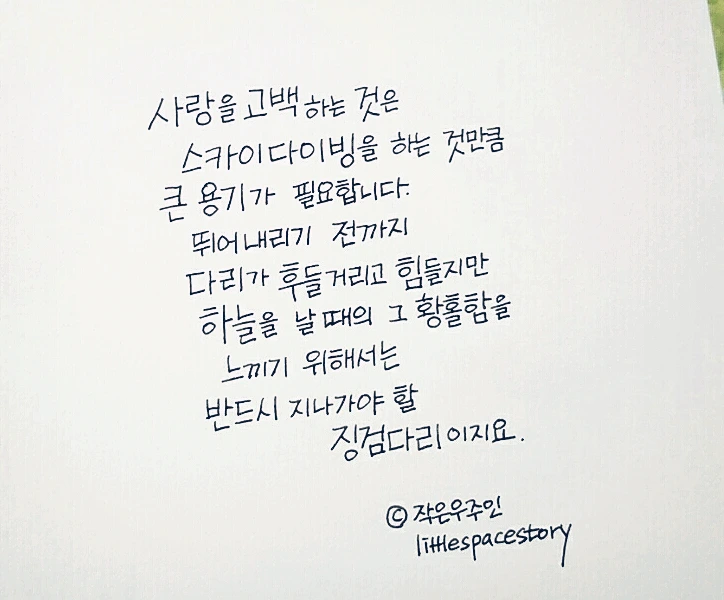 사랑을 고백하는 것은
스카이다이빙을 하는 것만큼
큰 용기가 필요합니다.
뛰어내리기 전까지
다리가 후들거리고 힘들지만
하늘을 날 때의 그 황홀함을
느끼기 위해서는
반드시 지나가야 할
징검다리이지요.
© 작은우주인
littlespacestory